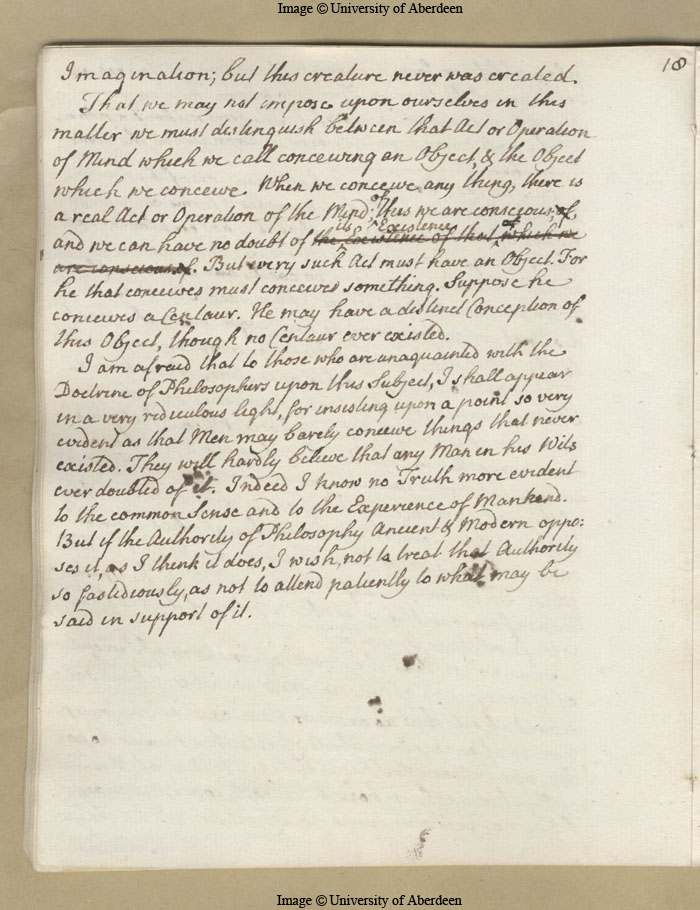 Image © University of Aberdeen
18
Imagination; but this creature never was created.
That we may not impose upon ourselves in this
matter we must distinguish between that Act or Operation
of Mind which we call conceiving an Object, & the Object
which we conceive. When we conceive any thing, there is
a real Act or Operation of the Mind; of this we are conscious, of,
and we can have no doubt of its Existence the Existence of that of which we
are conscious of. But every such Act must have an Object. For
he that conceives must conceive something. Suppose he
conceives a Centaur. He may have a distinct Conception of
this Object, though no Centaur ever existed.
I am afraid that to those who are unaquainted with the
Doctrine of Philosophers upon this Subject, I shall appear
in a very ridiculous light, for insisting upon a point so very
evident as that Men may barely conceive things that never
existed. They will hardly believe that any Man in his Wits
ever doubted of it. Indeed I know no Truth more evident
to the common Sense and to the Experience of Mankind.
But if the Authority of Philosophy Ancient & Modern oppo:
ses it, as I think it does, I wish, not to treat that Authority
so fastidiously, as not to attend patiently to what may be
said in support of it.
Image © University of Aberdeen